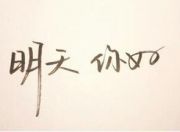 明天 你好